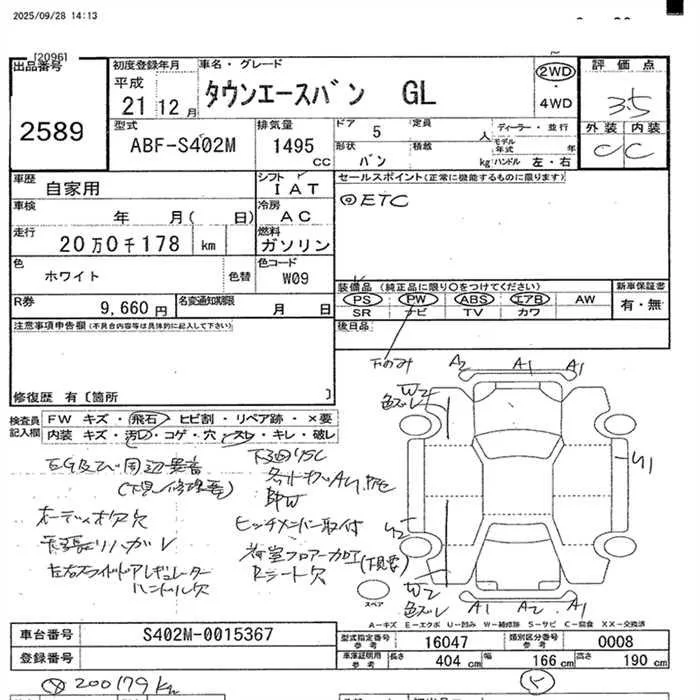 2025/09/28 14:13
[2096]
出品番号
2589
初度登録年月
平成
21 12 月
車名・グレード
タウンエースバン GL
2WD
4WD
評価点
3.5
外装 内装
C C
型式
ABF-S402M
排気量
1495
CC
ドア 5
定員
人
形状
バン
積載
kg
ディーラー・並行
モデル年式
年
ハンドル 左・右
車歴
自家用
シフト
IAT
セールスポイント(正常に機能するものに限ります)
◎ETC
車検
年 月( 日)
冷房
AC
走行
20万0千178 km
燃料
ガソリン
色
ホワイト
色替
色コード
W09
装備品(純正品に限り○をつけてください)
PS PW ABS エアB AW
SR ナビ TV カワ
新車保証書
有・無
R券
9,660円
名変通知期限
月 日
後日品
注意事項申告欄(不具合内容等は具体的に記入して下さい)
修復歴 有〔箇所 〕
下のみ
A2 A1 A1
W2
色ズレ
検査員
記入欄
FW キズ・飛石・ヒビ割・リペア跡・×要
内装 キズ・汚れ・コゲ・穴・スレ・キレ・破レ
オーディオ欠
天張りハガレ
ヒッチメンバー取付
荷室フロアー加工(下見要)
Rシート欠
U1
U2
W2
色ズレ
A1 A2 A1
スペア
A=キズ E=エクボ U=凹み W=補修跡 S=サビ C=腐食 XX=交換済
車台番号
S402M-0015367
登録番号
型式指定番号
参考
16047
類別区分番号
参考
0008
車庫証明用
参考
長さ
404 cm
幅
166 cm
高さ
190 cm
200179Km